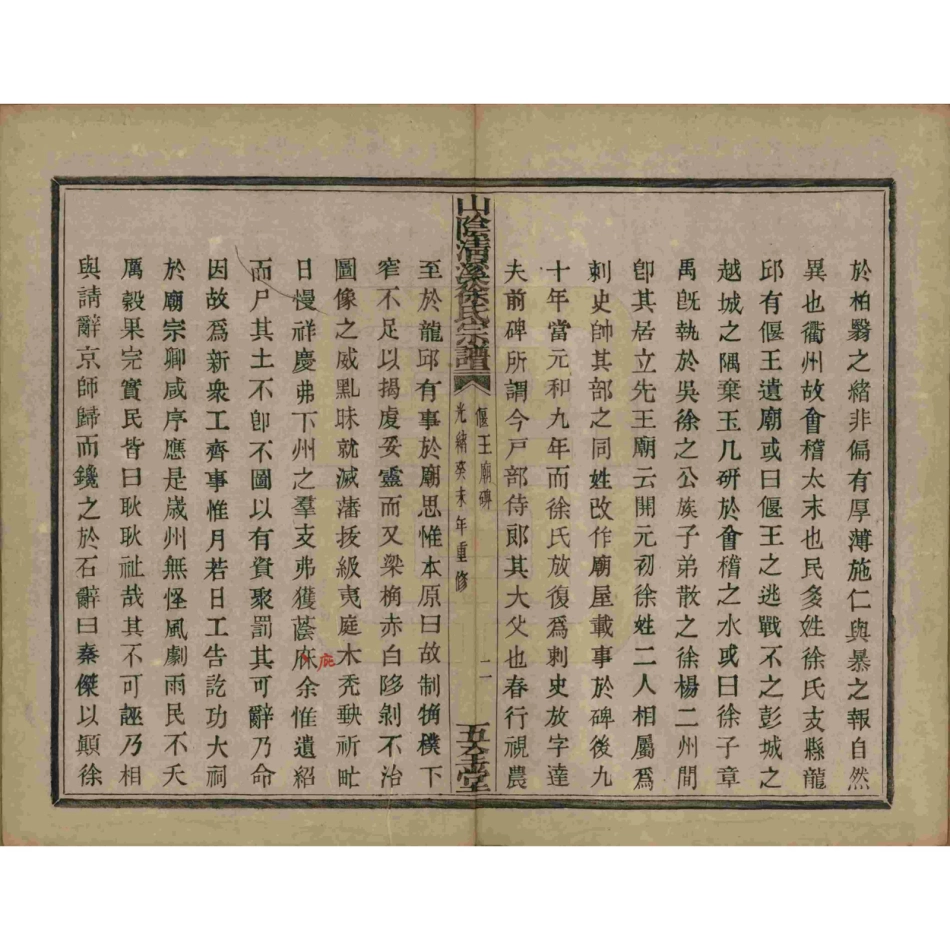 於柏翳之緒非偏有厚薄施仁與暴之報自然
異也衢州故會稽太末也民多姓徐氏支縣龍
邱有偃王遺廟或曰偃王之逃戰不之彭城之
越城之隅棄玉几研於會稽之水或曰徐子章
禹旣執於吳徐之公族子弟散之徐楊二州間
卽其居立先王廟云開元初徐姓二人相屬爲
刺史帥其部之同姓改作廟屋載事於碑後九
十年當元和九年而徐氏放復爲刺史放字達
夫前碑所謂今戸部侍郎其大父也春行視農
山陰清溪徐氏宗譜
偃王廟碑
光緒癸未年重修
二
至於龍邱有事於廟思惟本原曰故制觕樸下
窄不足以揭虔妥靈而又梁桷赤白陊剝不治
圖像之威黠昧就滅藩拔級夷庭木秃缺祈甿
日慢祥慶弗下州之羣支弗獲蔭庥余惟遺紹
庇
而尸其土不卽不圖以有資聚罰其可辭乃命
因故爲新衆工齊事惟月若日工告訖功大祠
於廟宗卿咸序應是歲州無怪風劇雨民不夭
厲穀果完實民皆曰耿耿祉哉其不可誣乃相
與請辭京師歸而鑱之於石辭曰秦傑以顛徐